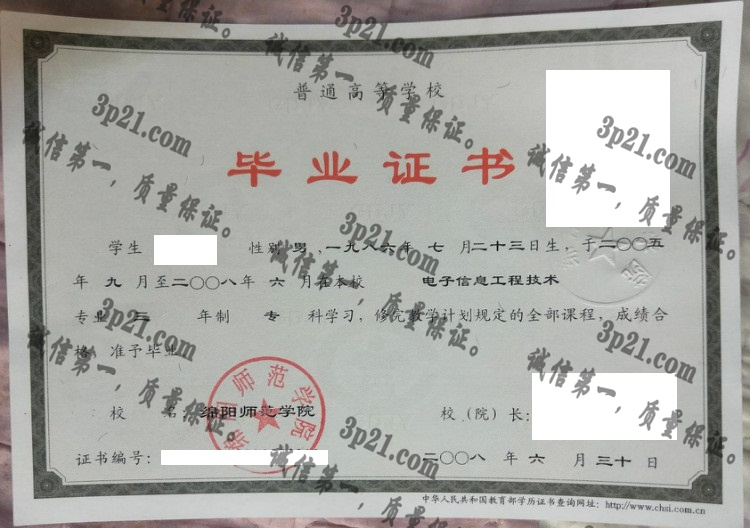 普通高等学校
毕业证书
学生 性别 男 、一九八六年 七 月二十三日生，于二〇〇五
年 九 月至二〇〇八年 六 月在本校 电子信息工程技术
专业 三 年制 专 科学习，修完教学计划规定的全部课程，成绩合
格，准予毕业。
校 名：绵阳师范学院
校（院）长：
证书编号：
二〇〇八 年 六 月 三十 日
中华人民共和国教育部学历证书查询网址：http://www.chsi.com.cn
绵阳师范学院
3p21.com
诚信第一，质量保证。
3p21.com
诚信第一，质量保证。
3p21.com
诚信第一，质量保证。
3p21.com
诚信第一，质量保证。
3p21.com
诚信第一，质量保证。
3p21.com
诚信第一，质量保证。
3p21.com
诚信第一，质量保证。
3p21.com
诚信第一，质量保证。